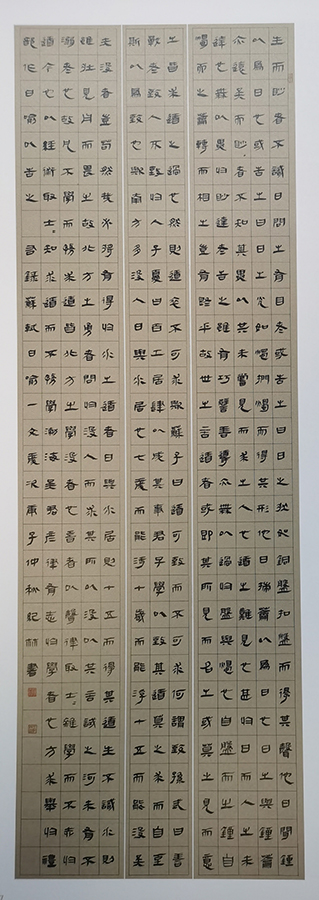 生而眇者不識日問之有目者或告之曰日之狀如銅盤扣盤而得其聲他日聞鐘
以爲日也或告之曰日之光如燭捫燭而得其形他日揣籥以爲日也日之與鐘籥
亦遠矣而眇者不知其異以其未嘗見而求之人也道之難見也甚於日而人之未
達也無以異於眇達者告之雖有巧譬善導亦無以過於盤與燭也自盤而之鐘自
燭而之籥轉而相之豈有既乎故世之言道者或即其所見而名之或莫之見而意
之皆求道之過也然則道卒不可求歟蘇子曰道可致而不可求何謂致孫武曰善
戰者致人不致於人子夏曰百工居肆以成其事君子學以致其道莫之求而自至
斯以爲致也歟南方多沒人日與水居也七歲而能涉十歲而能浮十五而能沒矣
夫沒者豈苟然哉必將有得於水之道者日與水居則十五而得其道生不識水則
雖壯見舟而畏之故北方之勇者問於沒人而求其所以沒以其言試之河未有不
溺者也故凡不學而務求道皆北方之學沒者也昔者以聲律取士士雜學而不志於
道今也以經術取士士知求道而不務學渤海吳君彥律有志於學者也方求舉於禮
部作日喻以告之 右錄蘇軾日喻一文 庚子仲秋 書